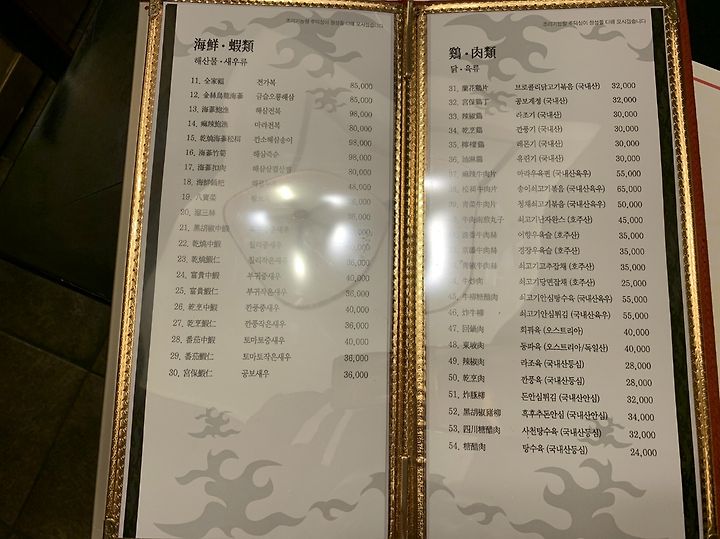 조리기능장 주덕성이 정성을 다해 모시겠습니다
海鮮·蝦類
해산물·새우류
11. 全家福 전가복 85,000
12. 金絲烏龍海蔘 금슬오룡해삼 85,000
13. 海蔘鮑漁 해삼전복 98,000
14. 麻辣鮑漁 마라전복 80,000
15. 乾燒海蔘松栮 깐소해삼송이 98,000
16. 海蔘竹荀 해삼죽순 98,000
17. 海蔘扣肉 80,000
18. 海鮮鍋粑
19. 八寶菜
20. 溜三絲
21. 黑胡椒中蝦
22. 乾燒中蝦 칠리중새우
23. 乾燒蝦仁 칠리작은새우 36,000
24. 富貴中蝦 부귀중새우 40,000
25. 富貴蝦仁 부귀작은새우 36,000
26. 乾烹中蝦 깐풍중새우 40,000
27. 乾烹蝦仁 깐풍작은새우 36,000
28. 番茄中蝦 토마토중새우 40,000
29. 番茄蝦仁 토마토작은새우 36,000
30. 宮保蝦仁 공보새우 36,000
조리기능장 주덕성이 정성을 다해 모시겠습니다
鷄·肉類
닭·육류
31. 蘭花鷄片 브로콜리닭고기볶음 (국내산) 32,000
32. 宮保鷄丁 공보계정 (국내산) 32,000
33. 辣椒鷄 라조기 (국내산) 30,000
34. 乾烹鷄 깐풍기 (국내산) 30,000
35. 檸檬鷄 레몬기 (국내산) 30,000
36. 油淋鷄 유린기 (국내산) 30,000
37. 麻辣牛肉片 마라우육편 (국내산육우) 55,000
38. 松栮牛肉片 송이쇠고기볶음 (국내산육우) 65,000
39. 靑菜牛肉片 청채쇠고기볶음 (국내산육우) 50,000
牛肉南煎丸子 쇠고기난자완스 (호주산) 45,000
牛肉絲 어향우육슬 (호주산) 35,000
牛肉絲 경장우육슬 (호주산) 35,000
牛肉絲 쇠고기고추잡채 (호주산) 35,000
牛炒肉 쇠고기당면잡채 (호주산) 25,000
45. 牛柳糖醋肉 쇠고기안심탕수육 (국내산육우) 55,000
46. 炸牛柳 쇠고기안심튀김 (국내산육우) 55,000
47. 回鍋肉 회궈육 (오스트리아) 40,000
48. 東坡肉 동파육 (오스트리아/독일산) 40,000
49. 辣椒肉 라조육 (국내산등심) 28,000
50. 乾烹肉 깐풍육 (국내산등심) 28,000
51. 炸豚柳 돈안심튀김 (국내산안심) 32,000
52. 黑胡椒豬柳 흑후추돈안심 (국내산안심) 34,000
53. 四川糖醋肉 사천탕수육 (국내산등심) 32,000
54. 糖醋肉 탕수육 (국내산등심) 24,000